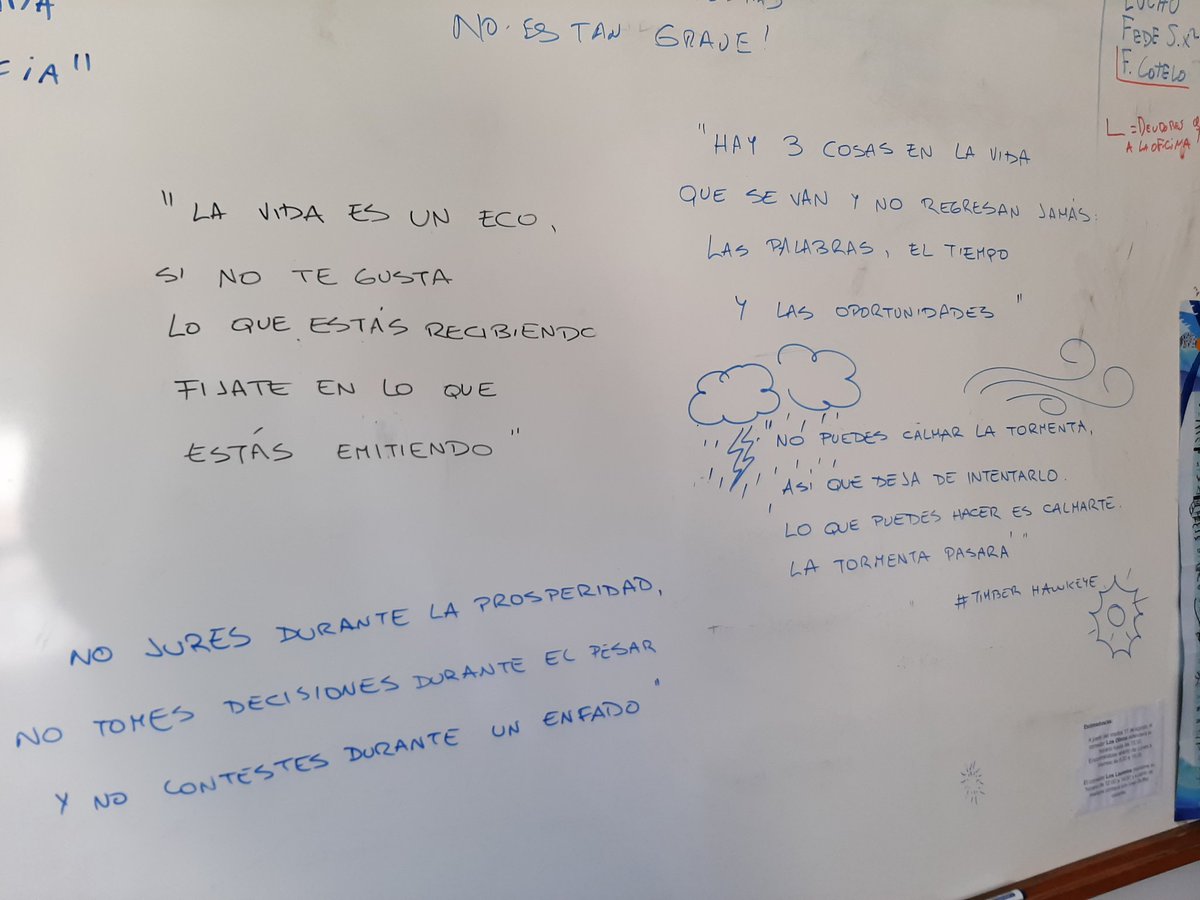 FIA"
NO ES TAN GRAVE!
LUCHO
FEDE S.x2
F. COTELO
L = DEUDORES
A LA OFICINA
"LA VIDA ES UN ECO,
SI NO TE GUSTA
LO QUE ESTÁS RECIBIENDO
FIJATE EN LO QUE
ESTÁS EMITIENDO"
"HAY 3 COSAS EN LA VIDA
QUE SE VAN Y NO REGRESAN JAMÁS:
LAS PALABRAS, EL TIEMPO
Y LAS OPORTUNIDADES"
"NO PUEDES CALMAR LA TORMENTA,
ASÍ QUE DEJA DE INTENTARLO.
LO QUE PUEDES HACER ES CALMARTE.
LA TORMENTA PASARÁ"
#TIMBER HAWKEYE
NO JURES DURANTE LA PROSPERIDAD,
NO TOMES DECISIONES DURANTE EL PESAR
Y NO CONTESTES DURANTE UN ENFADO"